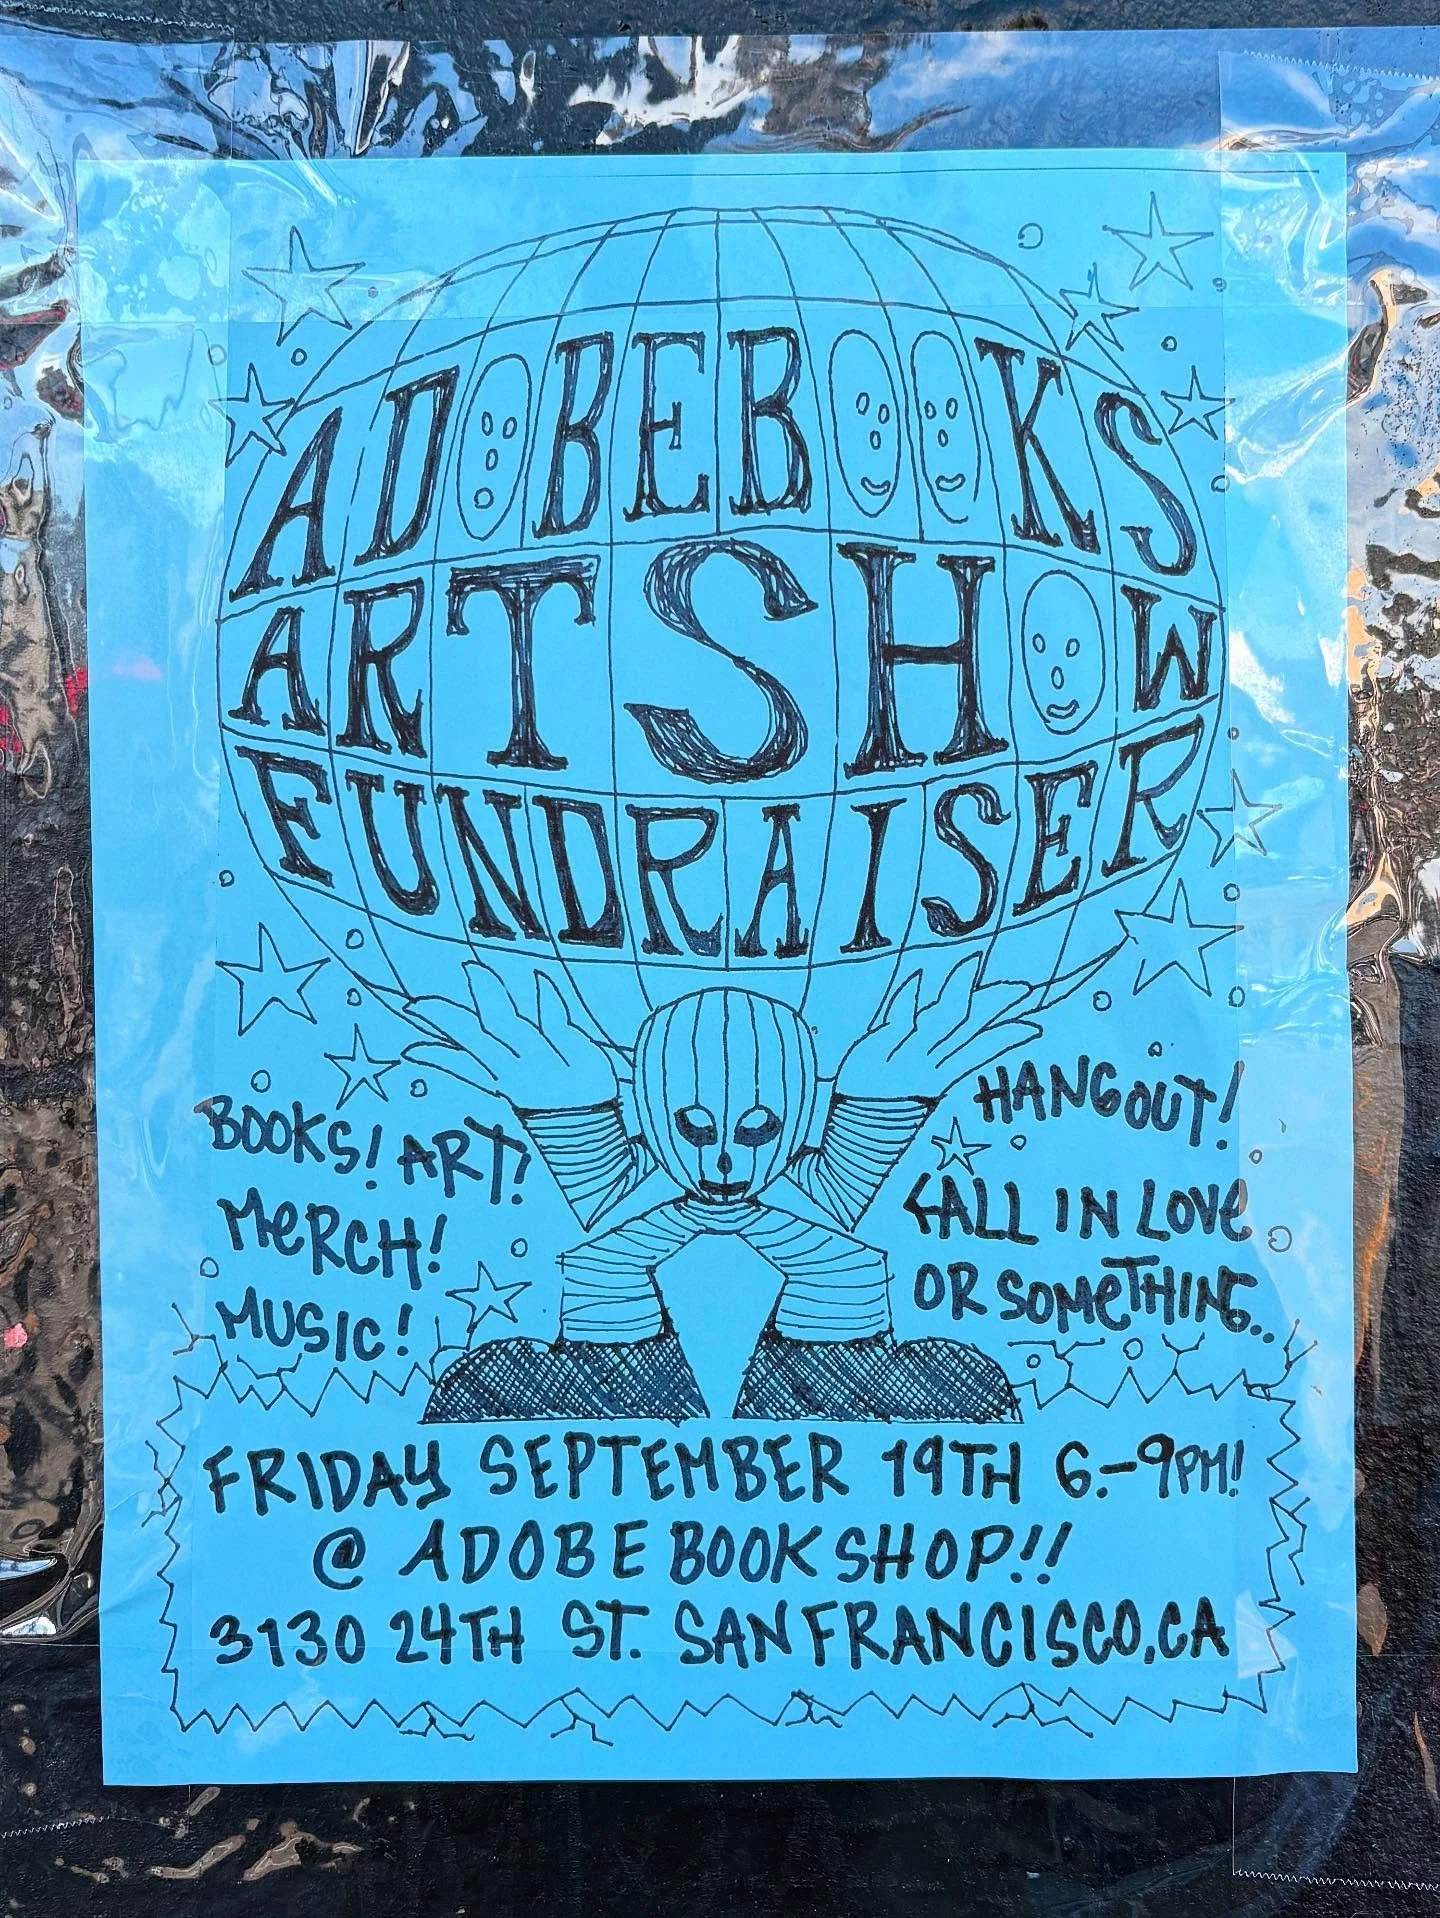 ADOBE BOOKS
ART SHOW
FUNDRAISER
BOOKS! ART!
MeRCH!
MUSIC!
HANGOUT!
FALL IN LOVe
OR SOMeTHING..
FRIDAY SEPTEMBER 19TH 6-9PM!
@ ADOBE BOOKSHOP!!
3130 24TH ST. SAN FRANCISCO, CA